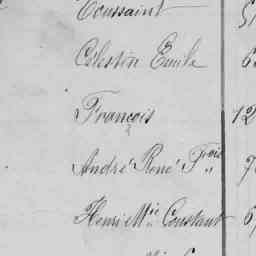 Toussaint
Célestin Émile 6
François 12
André René Frois 7
Henri Mie Constant 6